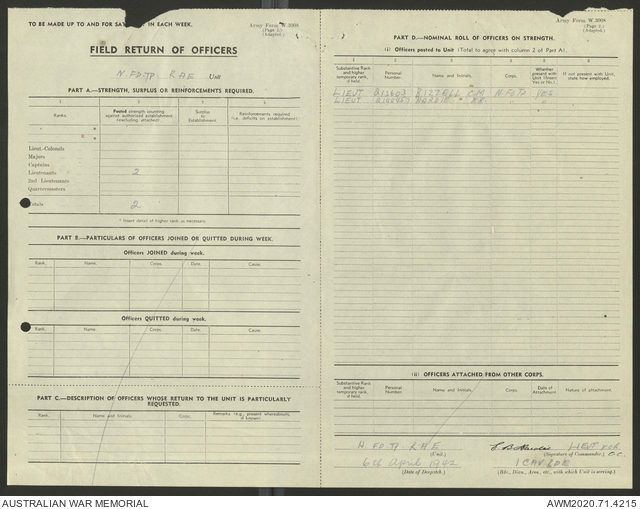 TO BE MADE UP TO AND FOR SAT IN EACH WEEK.
Army Form W.3008
(Page 1.)
(Adapted.)
FIELD RETURN OF OFFICERS
N. FD. TP. R A E Unit
PART A.—STRENGTH, SURPLUS OR REINFORCEMENTS REQUIRED.
1 2 3 4
Ranks. Posted strength counting against authorized establishment (excluding attached). Surplus to Establishment. Reinforcements required (i.e., deficits on establishment).
Lieut.-Colonels
Majors
Captains
Lieutenants 2
2nd Lieutenants
Quartermasters
Totals 2
* Insert detail of higher rank as necessary.
PART B.—PARTICULARS OF OFFICERS JOINED OR QUITTED DURING WEEK.
Officers JOINED during week.
Rank. Name. Corps. Date. Cause.
Officers QUITTED during week.
Rank. Name. Corps. Date. Cause.
PART C.—DESCRIPTION OF OFFICERS WHOSE RETURN TO THE UNIT IS PARTICULARLY REQUESTED.
Rank. Name and Initials. Corps. Remarks (e.g., present whereabouts, if known)
Army Form W.3008
(Page 2.)
(Adapted.)
PART D.—NOMINAL ROLL OF OFFICERS ON STRENGTH.
(i) Officers posted to Unit (Total to agree with column 2 of Part A).
1 2 3 4 5 6
Substantive Rank and higher temporary rank, if held. Personal Number. Name and Initials. Corps. Whether present with Unit (Insert Yes or No.) If not present with Unit, state how employed.
LIEUT C.M N. FD TP YES
LIEUT
(ii) OFFICERS ATTACHED FROM OTHER CORPS.
Substantive Rank and higher temporary rank, if held. Personal Number. Name and Initials. Corps. Date of Attachment Nature of attachment.
N. FD. TP. R A E LIEUT FOR
(Unit.) (Signature of Commander.) O.C.
6th April 1942 1 CAV
(Date of Despatch.) (Bde., Divn., Area, etc., with which Unit is serving.)
AUSTRALIAN WAR MEMORIAL AWM2020.71.4215